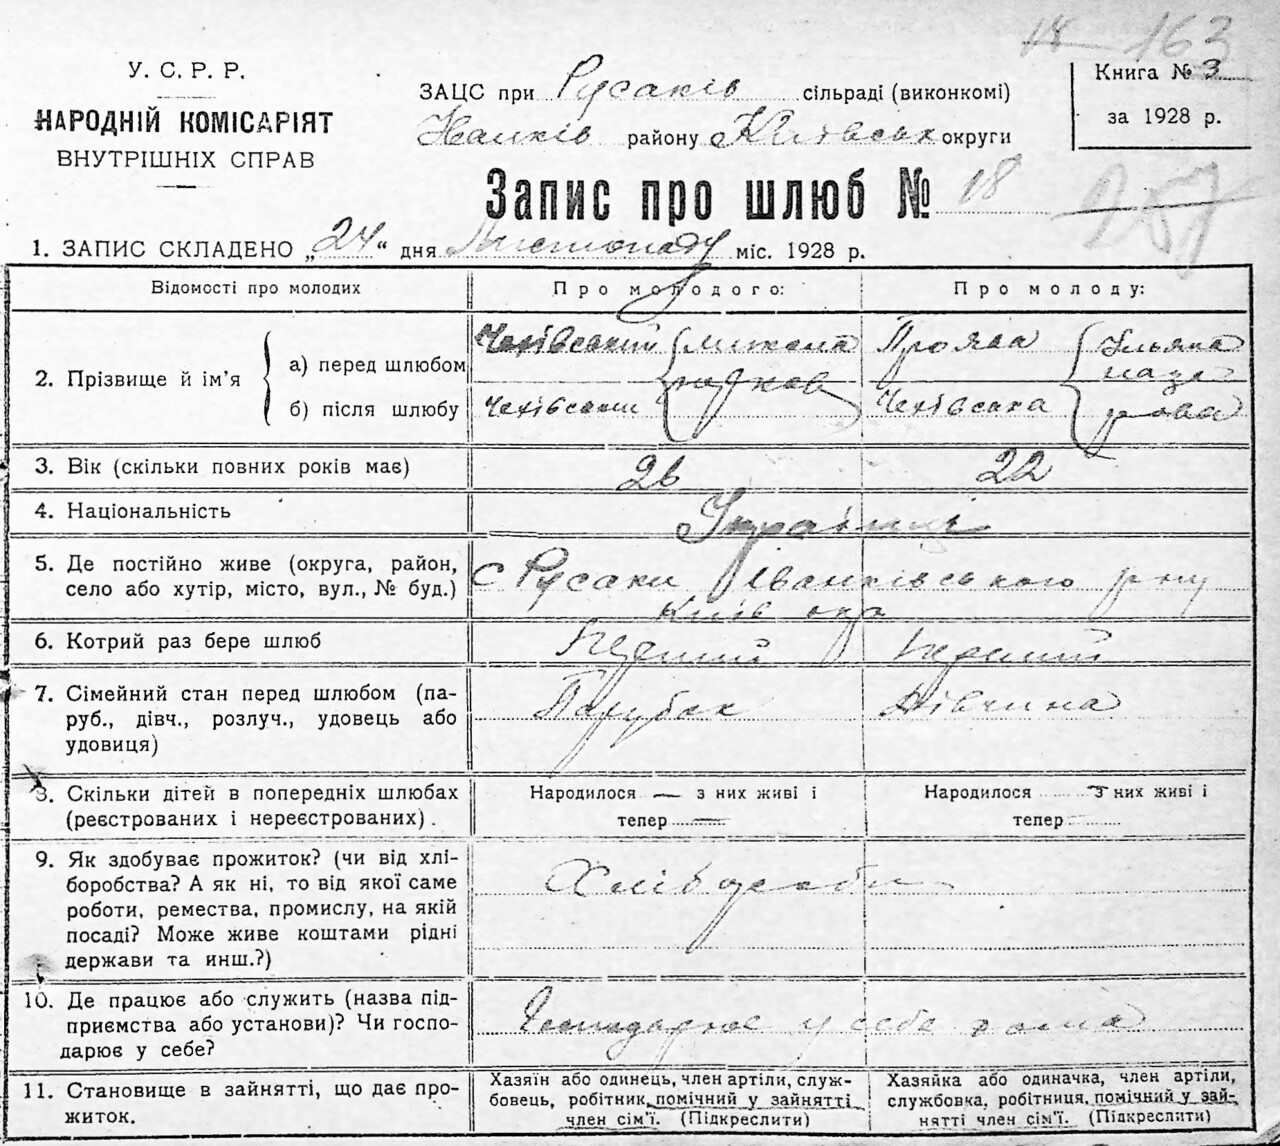 163
У. С. Р. Р.
НАРОДНІЙ КОМІСАРІЯТ
ВНУТРІШНІХ СПРАВ
ЗАЦС при Русаків сільраді (виконкомі)
району Київськ округи
Книга № 3
за 1928 р.
Запис про шлюб № 18
257
1. ЗАПИС СКЛАДЕНО „24“ дня Листопаду міс. 1928 р.
Відомості про молодих Про молодого: Про молоду:
2. Прізвище й ім’я
а) перед шлюбом Чехівський Проява Ульяна
б) після шлюбу Чехівськи Чехівська
3. Вік (скільки повних років має) 26 22
4. Національність Українці
5. Де постійно живе (округа, район, село або хутір, місто, вул., № буд.) с Русаки Іванківського р ну
Київ окр
6. Котрий раз бере шлюб Перший Перший
7. Сімейний стан перед шлюбом (па-
руб., дівч., розлуч., удовець або
удовиця)
Парубок Дівчина
8. Скільки дітей в попередніх шлюбах
(реєстрованих і нереєстрованих).
Народилося — з них живі і
тепер —
Народилося з них живі і
тепер
9. Як здобуває прожиток? (чи від хлі-
боробства? А як ні, то від якої саме
роботи, ремества, промислу, на якій
посаді? Може живе коштами рідні
держави та инш.?)
10. Де працює або служить (назва під-
приємства або установи)? Чи госпо-
дарює у себе?
Господарює у себе дома
11. Становище в зайнятті, що дає про-
житок.
Хазяїн або одинець, член артіли, служ-
бовець, робітник, помічний у зайнятті
член сім’ї. (Підкреслити)
Хазяйка або одиначка, член артіли,
службовка, робітниця, помічний у зай-
нятті член сім’ї. (Підкреслити)